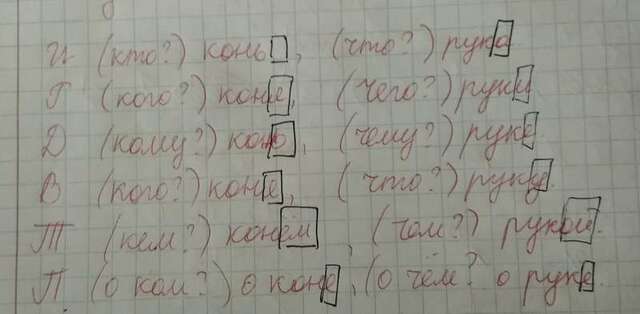 И (кто?) конь, (что?) рука
Г (кого?) коня, (чего?) руки
Д (кому?) коню, (чему?) руке
В (кого?) коня, (что?) руке.
Т (кем?) конём, (чем?) рукой.
П. (о ком?) о коне, (о чём? о руке.